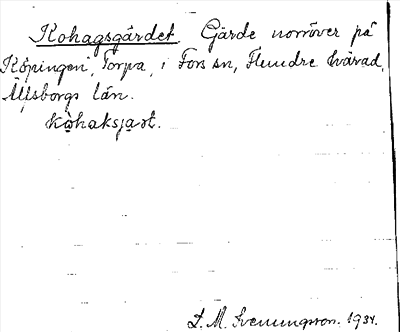 Kohagsgärdet. Gärde norröver på
Köpingen, Torpa, i Fors sn, Flundre härad,
Älfsborgs län.
kohaksjart.
L. M. Svenungsson. 1934.